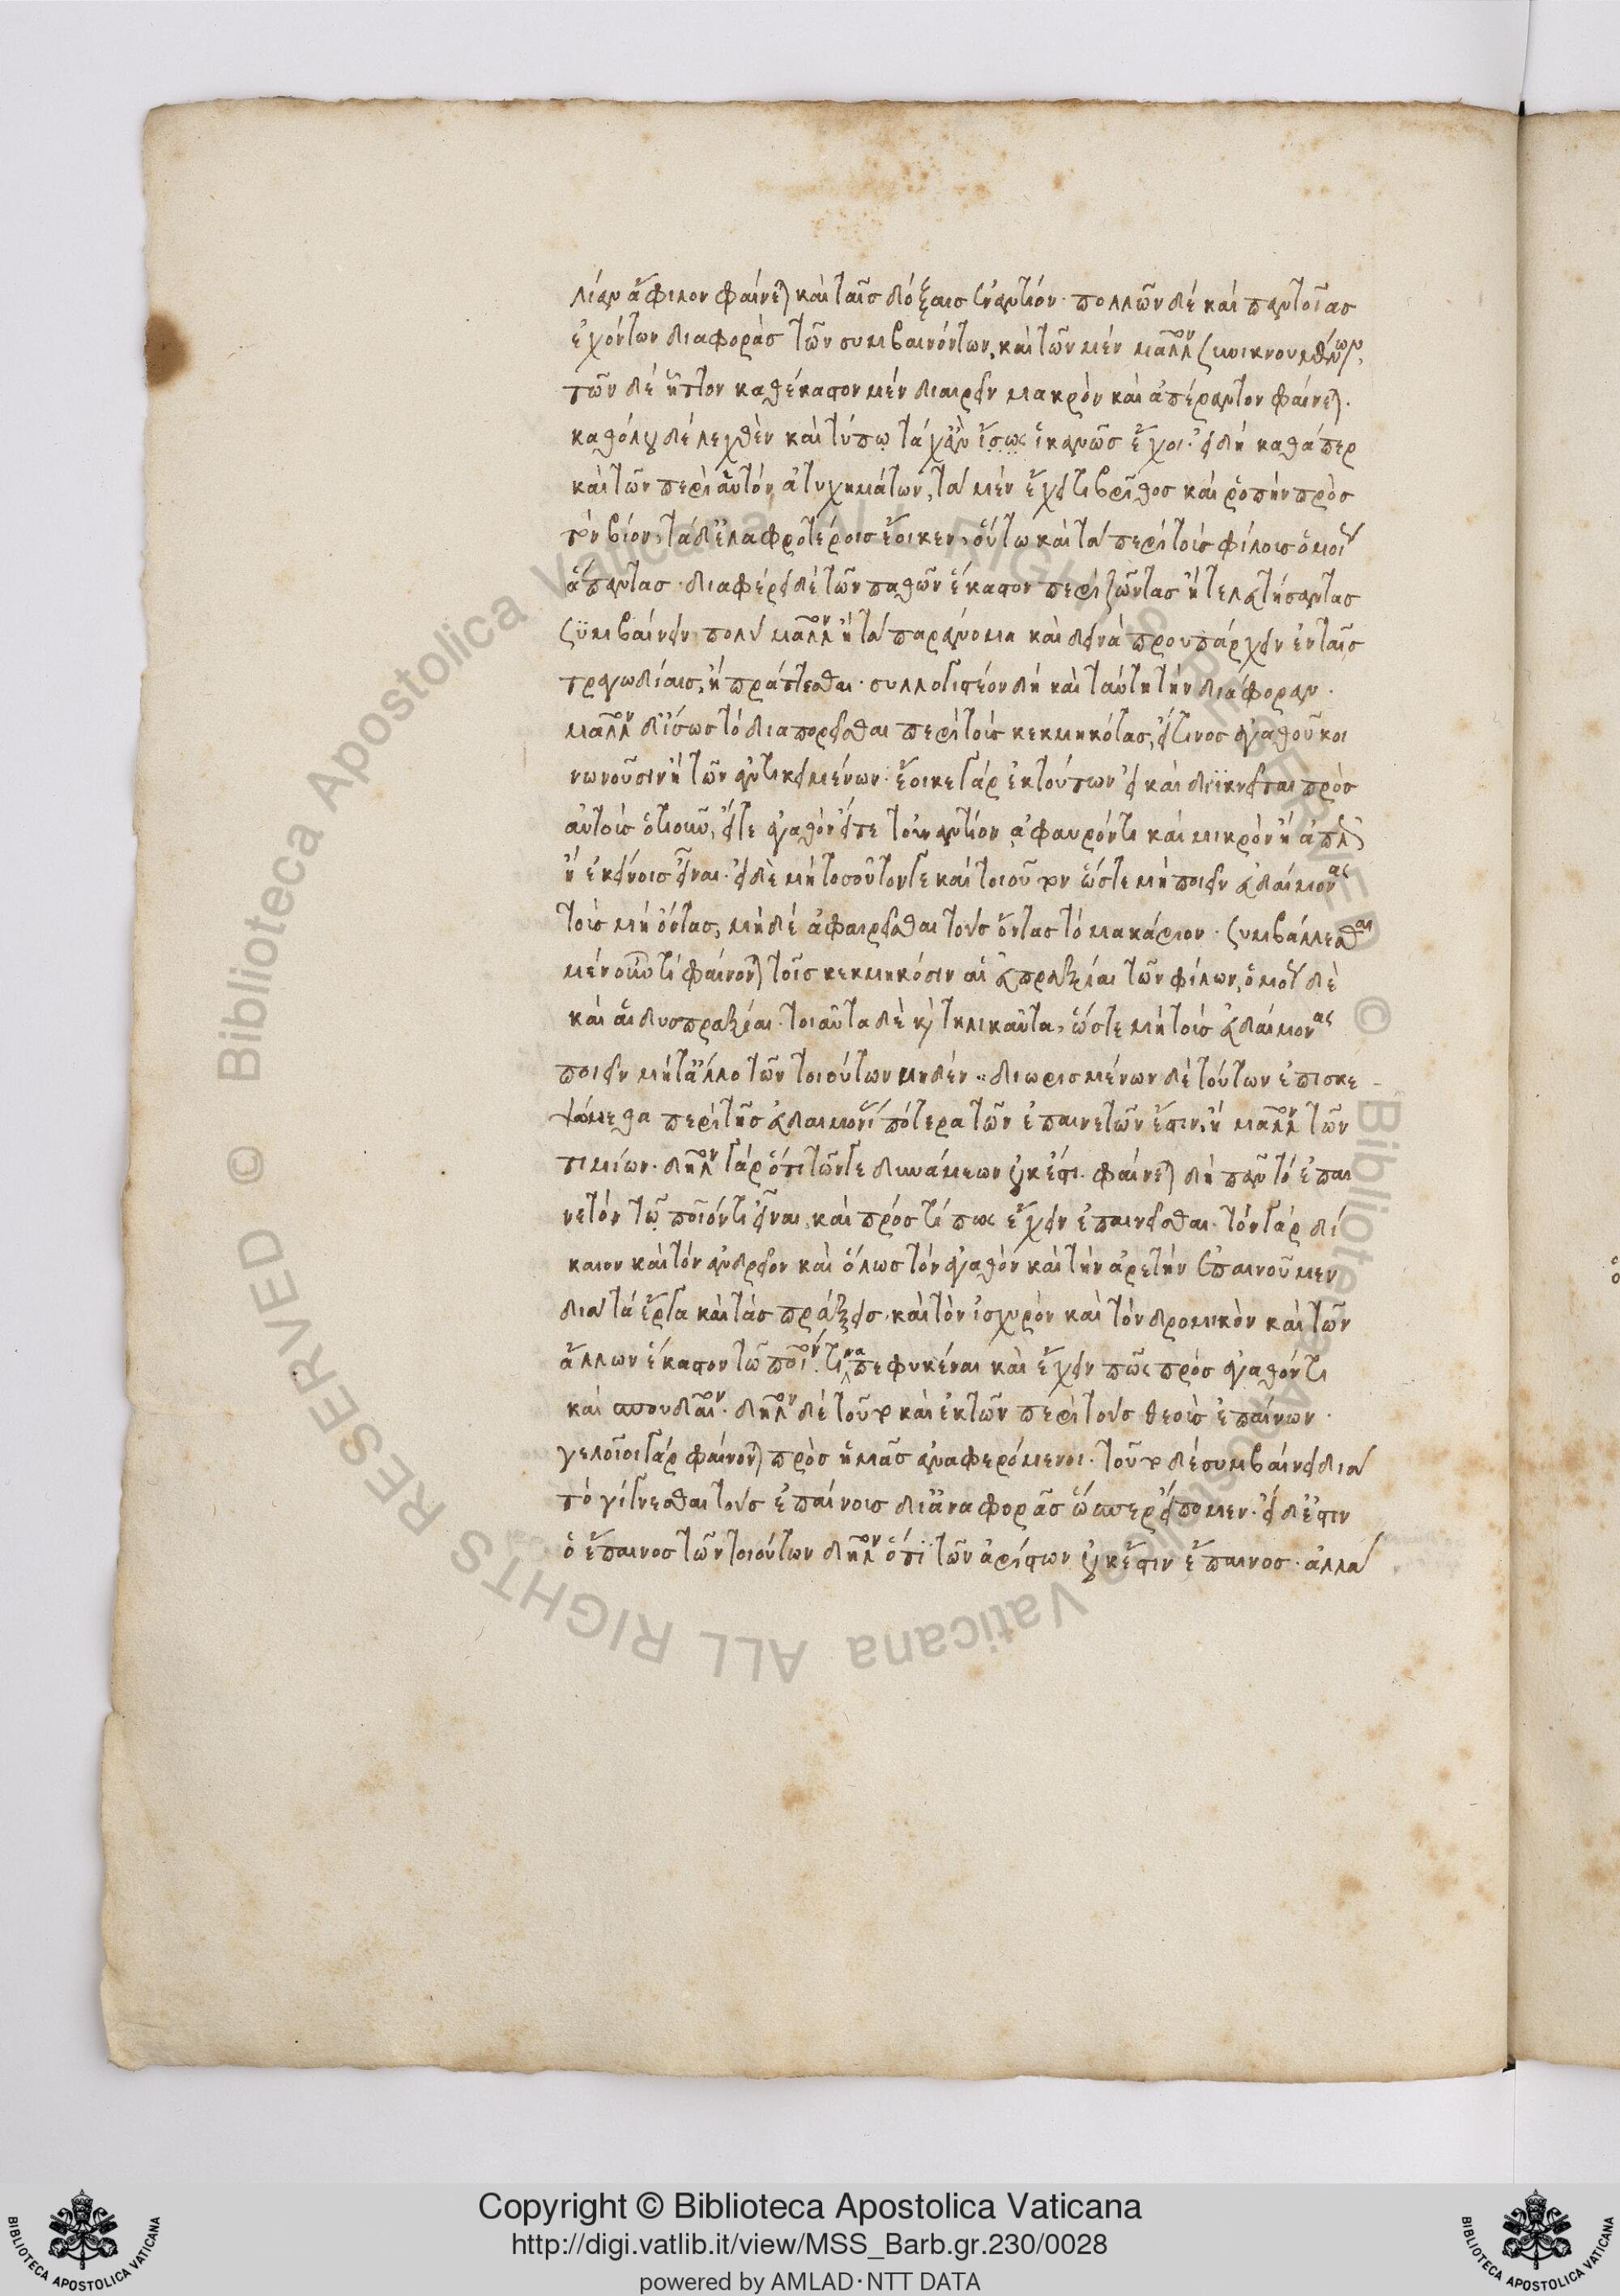 λίαν ἄφιλον φαίνεται καὶ ταῖς δόξαις ἐναντίον· πολλῶν δὲ καὶ παντοίας
ἐχόντων διαφορὰς τῶν συμβαινόντων, καὶ τῶν μὲν μᾶλλον συνικνουμένων,
τῶν δὲ ἧττον καθέκαστον μὲν διαιρεῖν μακρὸν καὶ ἀπέραντον φαίνεται.
καθόλου δὲ λεχθὲν καὶ τύπῳ τάχ' ἂν ἴσως ἱκανῶς ἔχοι· εἰ δὴ καθάπερ
καὶ τῶν περὶ αὑτὸν ἀτυχημάτων, τὰ μὲν ἔχει τι βρῖθος καὶ ῥοπὴν πρὸς
τὸν βίον, τὰ δ' ἐλαφροτέροις ἔοικεν, οὕτω καὶ τὰ περὶ τοὺς φίλους ὁμοί
ἅπαντας· διαφέρει δὲ τῶν παθῶν ἕκαστον περὶ ζῶντας ἢ τελευτήσαντας
συμβαίνειν πολὺ μᾶλλον ἢ τὰ παράνομα καὶ δεινὰ προυπάρχειν ἐν ταῖς
τραγωδίαις, ἢ πράττεσθαι· συλλογιστέον δὴ καὶ ταύτη τὴν διάφοραν·
μᾶλλον δ' ἴσως τὸ διαπορεῖσθαι περὶ τοὺς κεκμηκότας, εἴ τινος ἀγαθοῦ κοι
νωνοῦσιν ἢ τῶν ἀντικειμένων· ἔοικε γὰρ ἐκ τούτων εἰ καὶ διϊκνεῖται πρὸς
αὐτοὺς ὁτιοῦν, εἴτε ἀγαθὸν εἴτε τοὐναντίον, ἀφαυρόν τι καὶ μικρὸν ἢ ἁπλῶς
ἢ ἐκείνοις εἶναι· εἰ δὲ μὴ τοσοῦτόν γε καὶ τοιοῦτον ὥστε μὴ ποιεῖν εὐδαίμονας
τοὺς μὴ ὄντας, μηδὲ ἀφαιρεῖσθαι τοὺς ὄντας τὸ μακάριον· συμβάλλεσθαι
μὲν οὖν τί φαίνονται τοῖς κεκμηκόσιν αἱ εὐπραξίαι τῶν φίλων, ὁμοί δὲ
καὶ αἱ δυσπραξίαι· τοιαῦτα δὲ καὶ τηλικαῦτα, ὥστε μὴ τοὺς εὐδαίμονας
ποιεῖν μήτ' ἄλλο τῶν τοιούτων μηδέν·· διωρισμένων δὲ τούτων ἐπισκε-
ψώμεθα περὶ τῆς εὐδαιμονί πότερα τῶν ἐπαινετῶν ἐστιν, ἢ μᾶλλον τῶν
τιμίων· δῆλον γὰρ ὅτι τῶν γε δυνάμεων οὐκ ἔστι· φαίνεται δὴ πᾶν τὸ ἐπαι
νετὸν τῷ ποιόν τι εἶναι, καὶ πρός τί πως ἔχειν ἐπαινεῖσθαι· τὸν γὰρ δί
καιον καὶ τὸν ἀνδρεῖον καὶ ὅλως τὸν ἀγαθὸν καὶ τὴν ἀρετὴν ἐπαινοῦμεν
διὰ τὰ ἔργα καὶ τὰς πράξεις· καὶ τὸν ἰσχυρὸν καὶ τὸν δρομικὸν καὶ τῶν
ἄλλων ἕκαστον τῶ ποιόν τινα πεφυκέναι καὶ ἔχειν πῶς πρὸς ἀγαθόν τι
καὶ σπουδαῖον· δῆλον δὲ τοῦτο καὶ ἐκ τῶν περὶ τοὺς θεοὺς ἐπαίνων·
γελοῖοι γὰρ φαίνονται πρὸς ἡμᾶς ἀναφερόμενοι· τοῦτο δὲ συμβαίνει διὰ
τὸ γίγνεσθαι τοὺς ἐπαίνους δι' ἀναφορᾶς ὥσπερ εἴπομεν· εἰ δ' ἐστιν
ὁ ἔπαινος τῶν τοιούτων δῆλον ὅτι τῶν ἀρίστων οὐκ ἔστιν ἔπαινος· ἀλλὰ
Copyright © Biblioteca Apostolica Vaticana
http://digi.vatlib.it/view/MSS_Barb.gr.230/0028
powered by AMLAD·NTT DATA
© Biblioteca Apostolica Vaticana ALL RIGHTS RESERVED
© Biblioteca Apostolica Vaticana ALL RIGHTS RESERVED
BIBLIOTECA APOSTOLICA VATICANA
BIBLIOTECA APOSTOLICA VATICANA